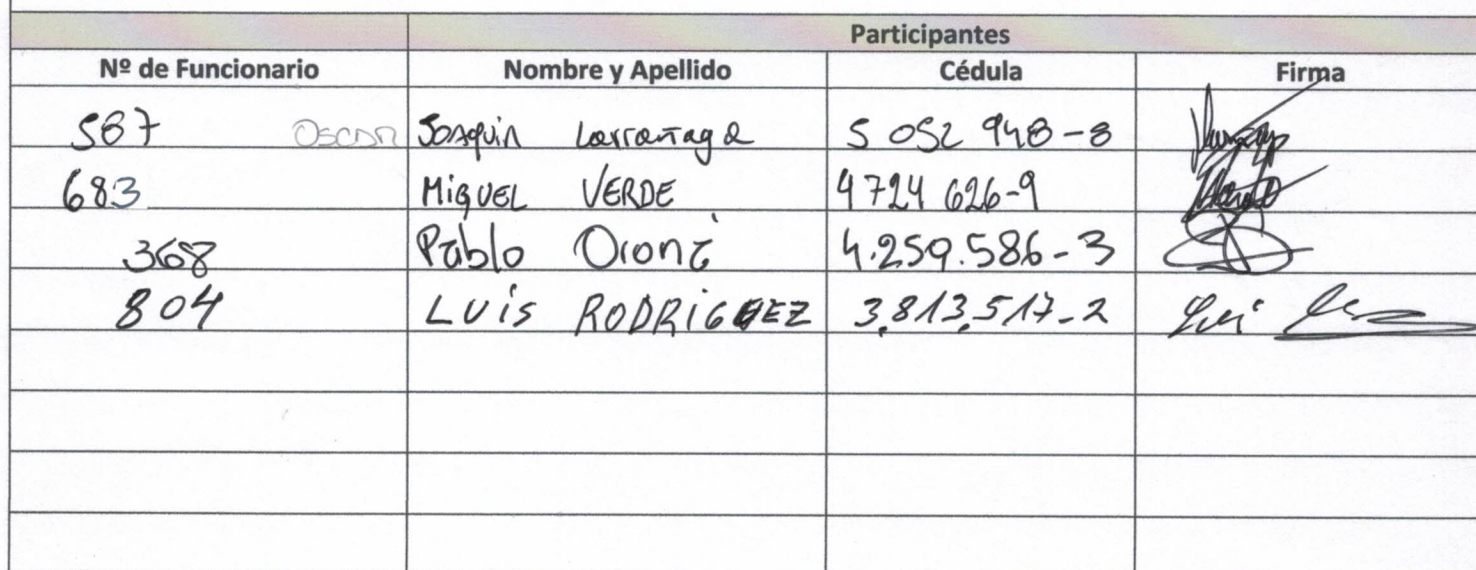 Participantes
Nº de Funcionario Nombre y Apellido Cédula Firma
587 OSCAR JOAquin Larrañaga 5 052 948-8
683 MiGUEL VERDE 4 724 626-9
368 Pablo 4.259.586-3
804 LUiS RODRiGUEZ 3.813.517-2